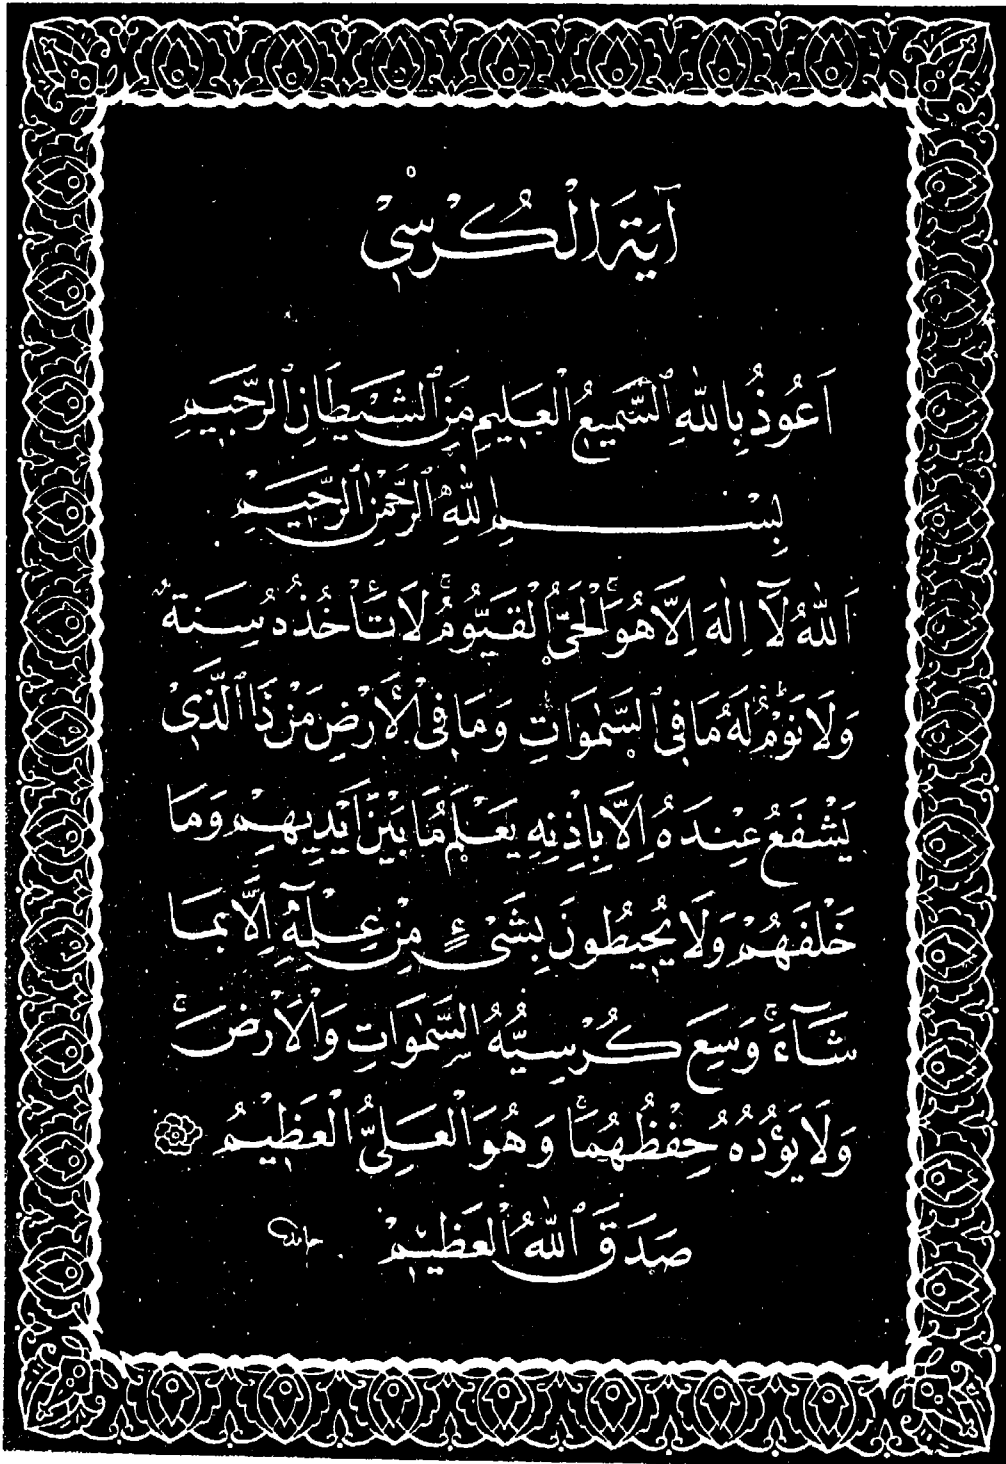 آيَةَ الْكُرْسْيِ
اَعُوذُ بِاللّٰهِ السَّمِيعُ الْعَلِيمِ مَنِ الشَّيْطَانِ الرَّجِيمِ
بِسْمِ اللّٰهِ الرَّحْمٰنِ الرَّحِيمِ
اَللّٰهُ لَٓا اِلٰهَ اِلَّا هُوَۚ اَلْحَيُّ الْقَيُّومُۚ لَا تَأْخُذُهُ سِنَةٌ
وَلَا نَوْمٌۜ لَهُ مَا فِي السَّمٰوَاتِ وَمَا فِي الْاَرْضِ مَنْ ذَا الَّذِي
يَشْفَعُ عِنْدَهُ اِلَّا بِاِذْنِهِ يَعْلَمُ مَا بَيْنَ اَيْدِيهِمْ وَمَا
خَلْفَهُمْ وَلَا يُحِيطُونَ بِشَيْءٍ مِنْ عِلْمِهِٓ اِلَّا بِمَا
شَٓاءَۚ وَسِعَ كُرْسِيُّهُ السَّمٰوَاتِ وَالْاَرْضَۚ
وَلَا يَؤُدُهُ حِفْظُهُمَاۚ وَهُوَ الْعَلِيُّ الْعَظِيمُ
صَدَقَ اللّٰهُ الْعَظِيمْ